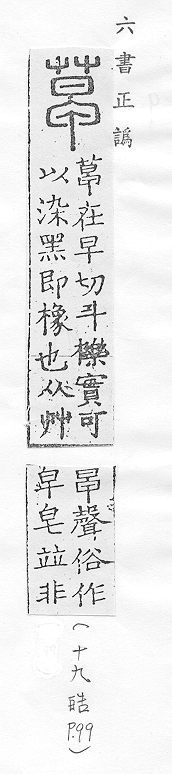 六書正譌
草在早切斗櫟實可
以染黑即橡也从艸
𣅷聲俗作
皁皂竝非
(十九皓 P.99)